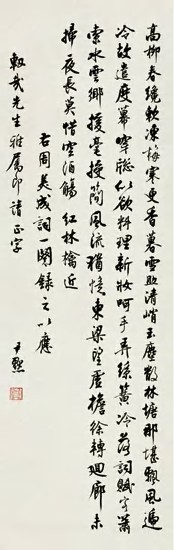 高柳春纔軟凍梅寒更香暮雪助清峭玉塵散林塘那堪飄風遞
冷故遣度幕穿牎似欲料理新妝呵手弄絲簧冷落詞賦客蕭
索水雲鄉援毫授簡風流猶憶東梁望虛檐徐轉廻廊未
掃夜長莫惜空酒觴 紅林檎近
右周美成詞一闋錄之以應
哉先生雅屬即請正字
尹默